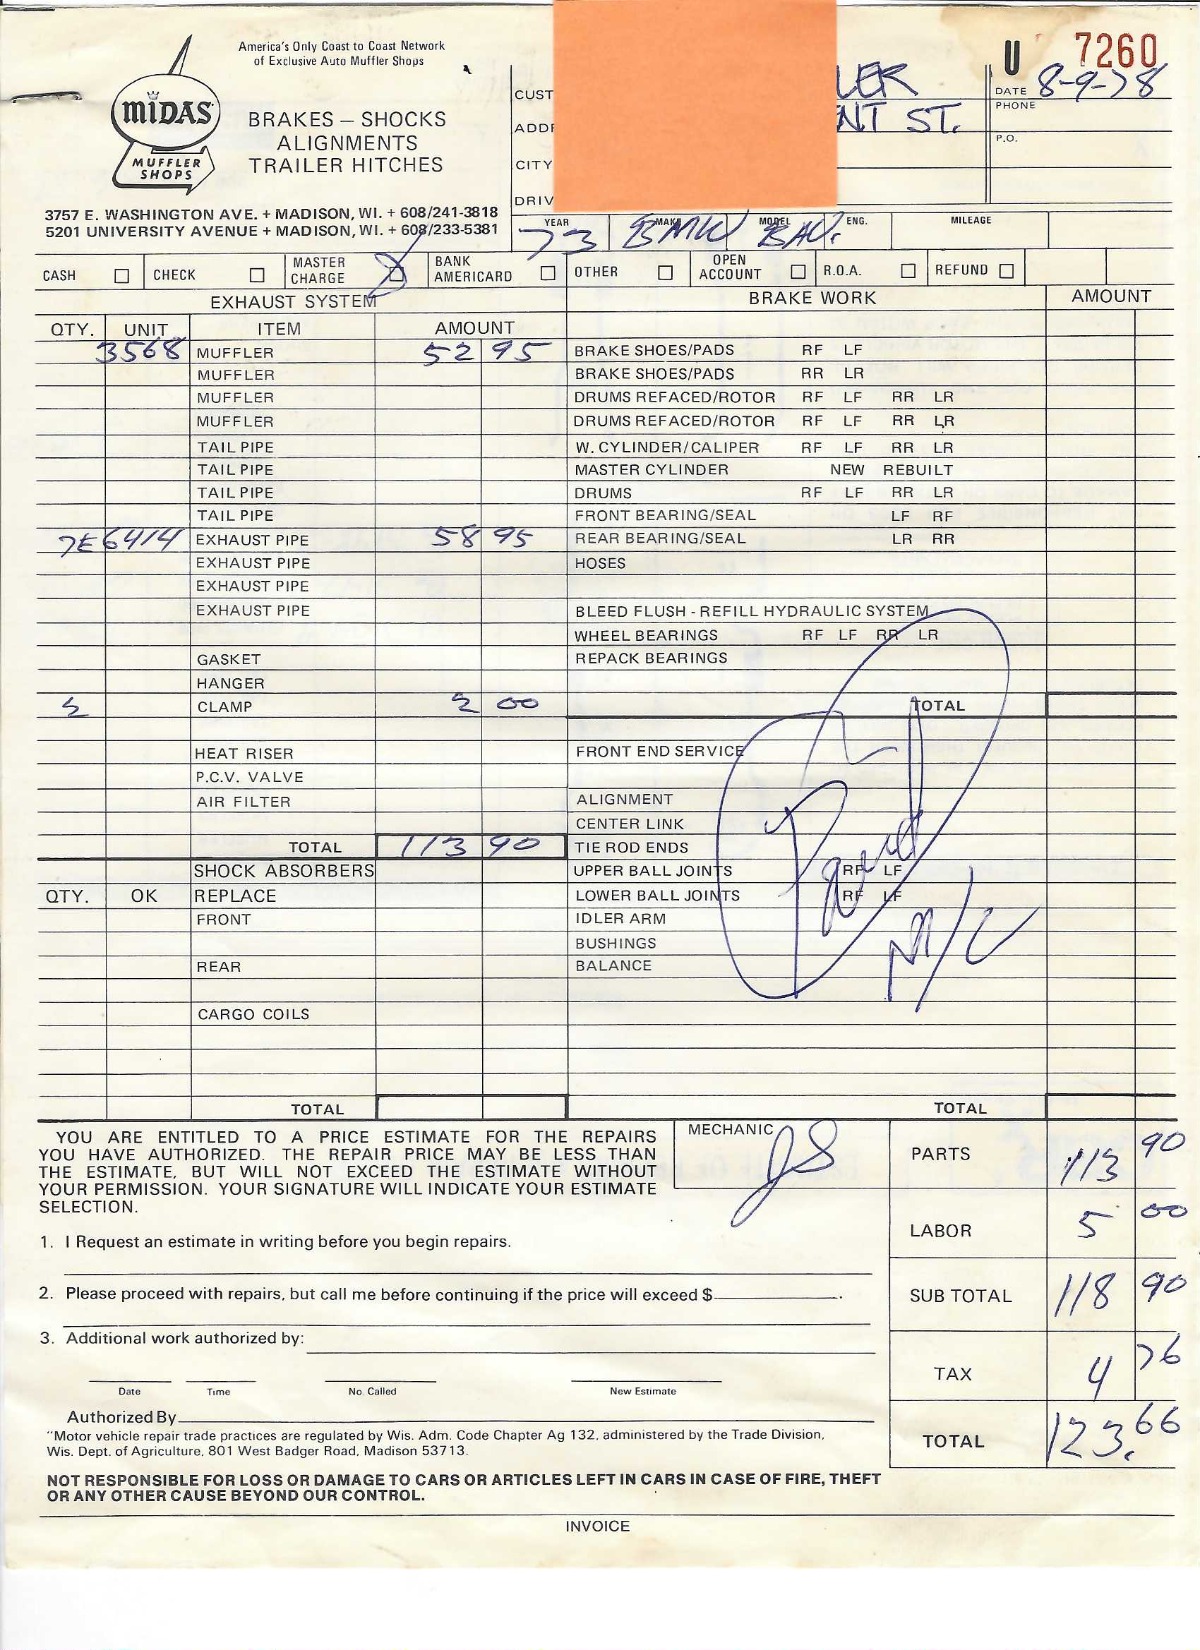 America's Only Coast to Coast Network
of Exclusive Auto Muffler Shops
U 7260
MIDAS
MUFFLER
SHOPS
BRAKES – SHOCKS
ALIGNMENTS
TRAILER HITCHES
CUST LER
DATE 8-9-78
PHONE
ADD NT ST.
P.O.
CITY
DRIV
3757 E. WASHINGTON AVE. + MADISON, WI. + 608/241-3818
5201 UNIVERSITY AVENUE + MADISON, WI. + 608/233-5381
YEAR MAKE MODEL ENG. MILEAGE
73 BMW BAV.
CASH CHECK MASTER CHARGE BANK AMERICARD OTHER OPEN ACCOUNT R.O.A. REFUND
EXHAUST SYSTEM BRAKE WORK AMOUNT
QTY. UNIT ITEM AMOUNT
3568 MUFFLER 52 95 BRAKE SHOES/PADS RF LF
MUFFLER BRAKE SHOES/PADS RR LR
MUFFLER DRUMS REFACED/ROTOR RF LF RR LR
MUFFLER DRUMS REFACED/ROTOR RF LF RR LR
TAIL PIPE W. CYLINDER/CALIPER RF LF RR LR
TAIL PIPE MASTER CYLINDER NEW REBUILT
TAIL PIPE DRUMS RF LF RR LR
TAIL PIPE FRONT BEARING/SEAL LF RF
7E6414 EXHAUST PIPE 58 95 REAR BEARING/SEAL LR RR
EXHAUST PIPE HOSES
EXHAUST PIPE
EXHAUST PIPE BLEED FLUSH - REFILL HYDRAULIC SYSTEM
WHEEL BEARINGS RF LF RR LR
GASKET REPACK BEARINGS
HANGER
2 CLAMP 2 00 TOTAL
HEAT RISER FRONT END SERVICE
P.C.V. VALVE
AIR FILTER ALIGNMENT
CENTER LINK
TOTAL 113 90 TIE ROD ENDS
SHOCK ABSORBERS UPPER BALL JOINTS RF LF
QTY. OK REPLACE LOWER BALL JOINTS RF LF
FRONT IDLER ARM
BUSHINGS
REAR BALANCE
Paid
M/C
CARGO COILS
TOTAL TOTAL
YOU ARE ENTITLED TO A PRICE ESTIMATE FOR THE REPAIRS
YOU HAVE AUTHORIZED. THE REPAIR PRICE MAY BE LESS THAN
THE ESTIMATE, BUT WILL NOT EXCEED THE ESTIMATE WITHOUT
YOUR PERMISSION. YOUR SIGNATURE WILL INDICATE YOUR ESTIMATE
SELECTION.
MECHANIC JS
PARTS 113 90
LABOR 5 00
1. I Request an estimate in writing before you begin repairs.
SUB TOTAL 118 90
2. Please proceed with repairs, but call me before continuing if the price will exceed $ .
3. Additional work authorized by:
TAX 4 76
Date Time No. Called New Estimate
Authorized By
TOTAL 123.66
"Motor vehicle repair trade practices are regulated by Wis. Adm. Code Chapter Ag 132, administered by the Trade Division,
Wis. Dept. of Agriculture, 801 West Badger Road, Madison 53713.
NOT RESPONSIBLE FOR LOSS OR DAMAGE TO CARS OR ARTICLES LEFT IN CARS IN CASE OF FIRE, THEFT
OR ANY OTHER CAUSE BEYOND OUR CONTROL.
INVOICE